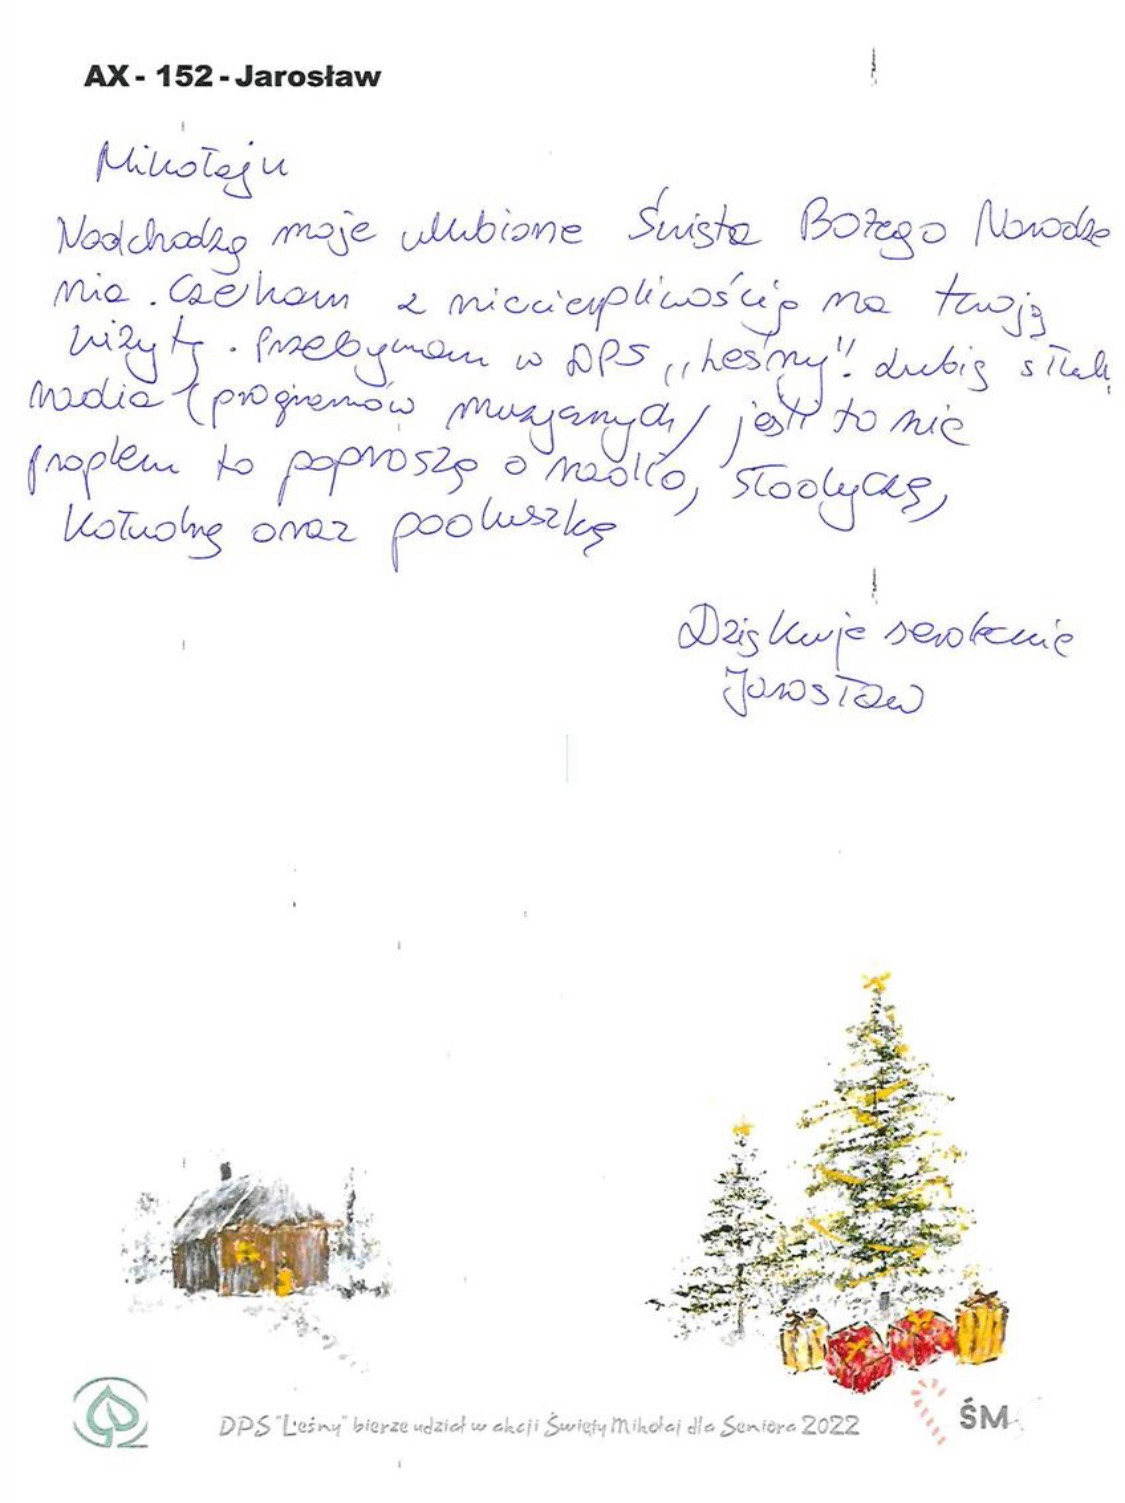 AX - 152 - Jarosław
Mikołaju
Nadchodzą moje ulubione Święta Bożego Narodze
nia. Czekam z niecierpliwością na twoją
wizytę. Przebywam w DPS „Leśny”. Lubię słuch
radia (programów muzycznych) jeśli to nie
proplem to poproszę o radio, słodycze,
kołudrę oraz poduszkę
Dziękuje serdecznie
Jarosław
DPS "Leśny" bierze udział w akcji Święty Mikołaj dla Seniora 2022
ŚM